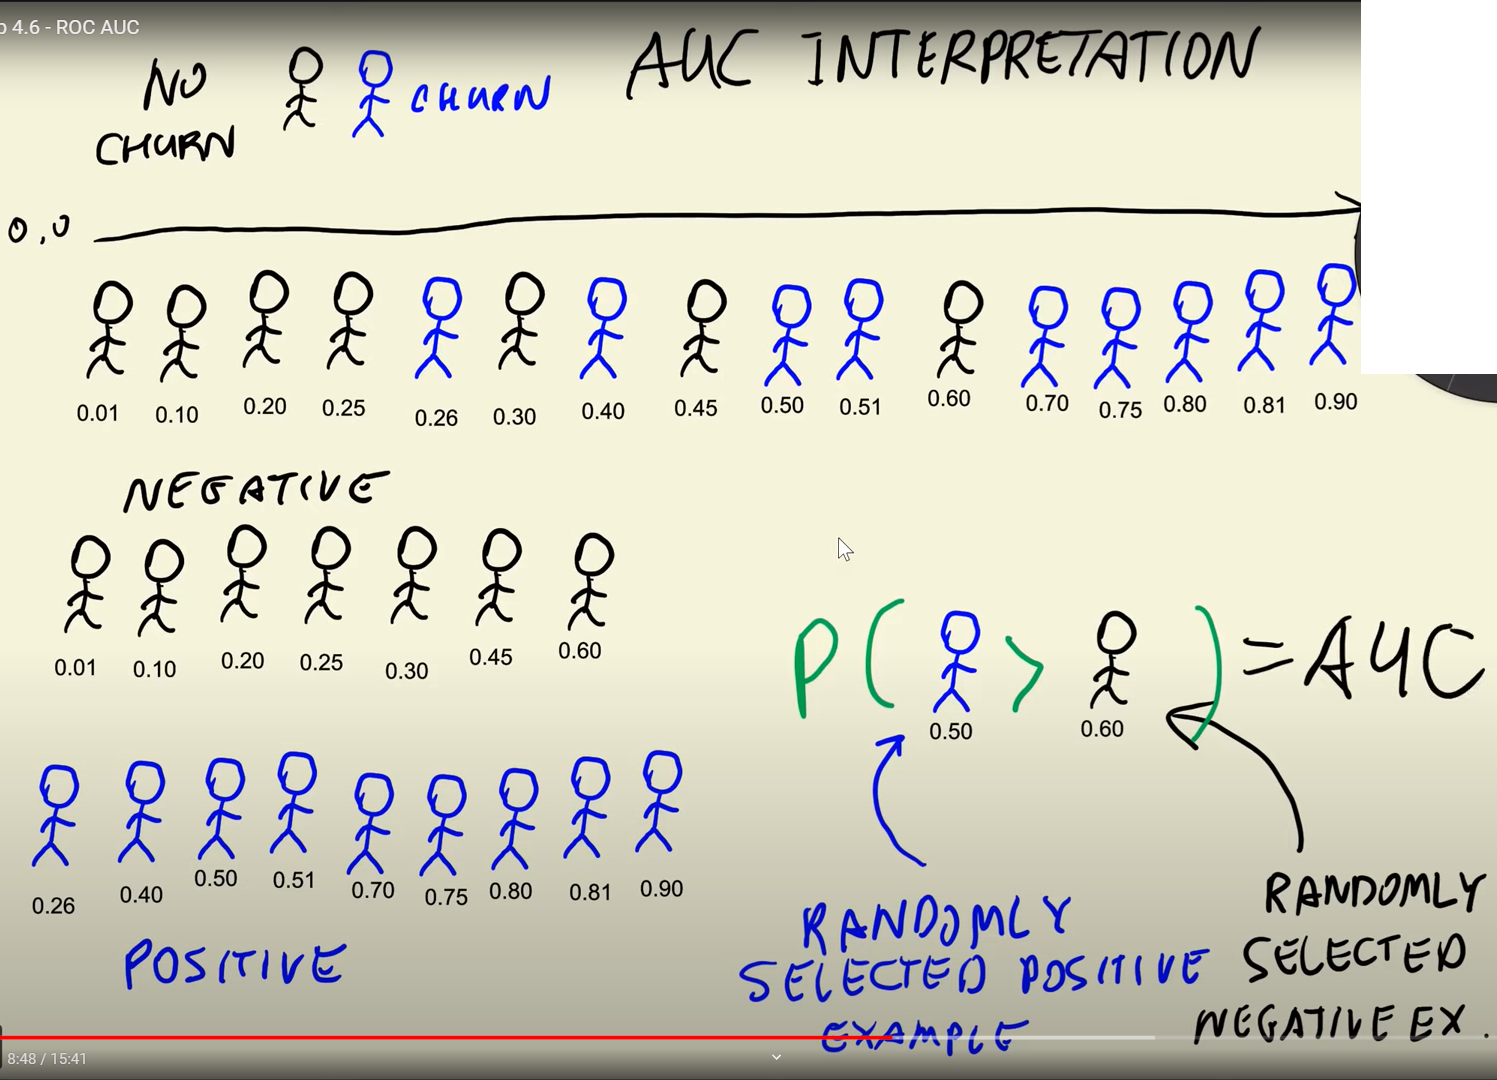 p 4.6 - ROC AUC
AUC INTERPRETATION
NO
CHURN
CHURN
0.0
0.01 0.10 0.20 0.25 0.26 0.30 0.40 0.45 0.50 0.51 0.60 0.70 0.75 0.80 0.81 0.90
NEGATIVE
0.01 0.10 0.20 0.25 0.30 0.45 0.60
P( > ) = AUC
0.50 0.60
0.26 0.40 0.50 0.51 0.70 0.75 0.80 0.81 0.90
POSITIVE
RANDOMLY
SELECTED POSITIVE
EXAMPLE
RANDOMLY
SELECTED
NEGATIVE EX.
8:48 / 15:41